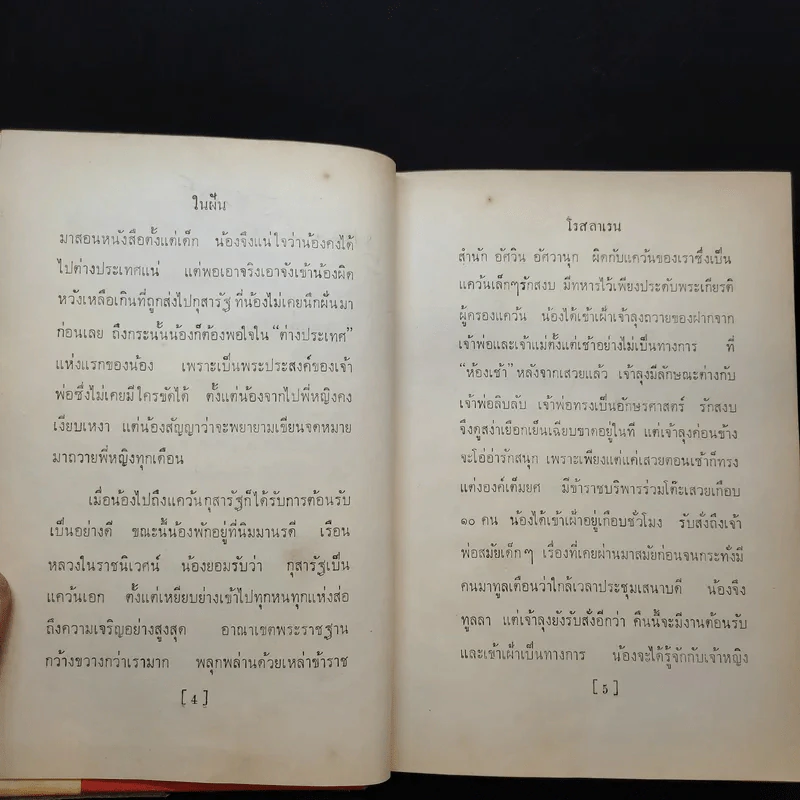 ในฝัน
มาสอนหนังสือตั้งแต่เด็ก น้องจึงแน่ใจว่าน้องคงได้
ไปต่างประเทศแน่ แต่พอเอาจริงเอาจังเข้าน้องผิด
หวังเหลือเกินที่ถูกส่งไปกุสารัฐ ที่น้องไม่เคยนึกฝันมา
ก่อนเลย ถึงกระนั้นน้องก็ต้องพอใจใน “ต่างประเทศ”
แห่งแรกของน้อง เพราะเป็นพระประสงค์ของเจ้า
พ่อซึ่งไม่เคยมีใครขัดได้ ตั้งแต่น้องจากไปพี่หญิงคง
เงียบเหงา แต่น้องสัญญาว่าจะพยายามเขียนจดหมาย
มาถวายพี่หญิงทุกเดือน
เมื่อน้องไปถึงแคว้นกุสารัฐก็ได้รับการต้อนรับ
เป็นอย่างดี ขณะนี้น้องพักอยู่ที่นิมมานรดี เรือน
หลวงในราชนิเวศน์ น้องยอมรับว่า กุสารัฐเป็น
แคว้นเอก ตั้งแต่เหยียบย่างเข้าไปทุกหนทุกแห่งส่อ
ถึงความเจริญอย่างสูงสุด อาณาเขตพระราชฐาน
กว้างขวางกว่าเรามาก พลุกพล่านด้วยเหล่าข้าราช
[ 4 ]
โรสลาเรน
สำนัก อัศวิน อัศวานุก ผิดกับแคว้นของเราซึ่งเป็น
แคว้นเล็กๆรักสงบ มีทหารไว้เพียงประดับพระเกียรติ
ผู้ครองแคว้น น้องได้เข้าเฝ้าเจ้าลุงถวายของฝากจาก
เจ้าพ่อและเจ้าแม่ตั้งแต่เช้าอย่างไม่เป็นทางการ ที่
“ห้องเช้า” หลังจากเสวยแล้ว เจ้าลุงมีลักษณะต่างกับ
เจ้าพ่อลิบลับ เจ้าพ่อทรงเป็นอักษรศาสตร์ รักสงบ
จึงดูสง่าเยือกเย็นเฉียบขาดอยู่ในที แต่เจ้าลุงค่อนข้าง
จะโอ่อ่ารักสนุก เพราะเพียงแต่แค่เสวยตอนเช้าก็ทรง
แต่งองค์เต็มยศ มีข้าราชบริพารร่วมโต๊ะเสวยเกือบ
๑๐ คน น้องได้เข้าเฝ้าอยู่เกือบชั่วโมง รับสั่งถึงเจ้า
พ่อสมัยเด็กๆ เรื่องที่เคยผ่านมาสมัยก่อนจนกระทั่งมี
คนมาทูลเตือนว่าใกล้เวลาประชุมเสนาบดี น้องจึง
ทูลลา แต่เจ้าลุงยังรับสั่งอีกว่า คืนนี้จะมีงานต้อนรับ
และเข้าเฝ้าเป็นทางการ น้องจะได้รู้จักกับเจ้าหญิง
[ 5 ]